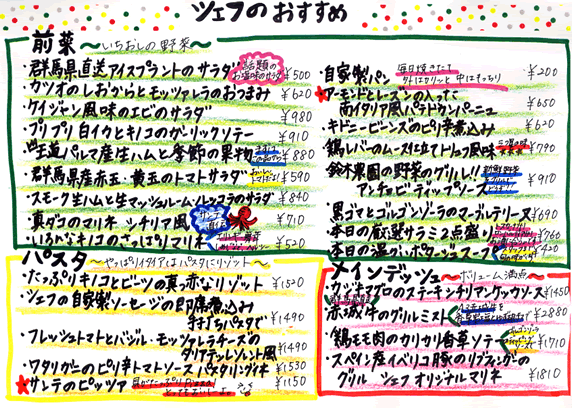 シェフのおすすめ
前菜 〜いちおしの野菜〜
・群馬県直送アイスプラントのサラダ 話題のお塩味のサラダ ¥500
・カツオのしおからとモッツァレラのおつまみ ¥620
・ケイジャン風味のエビのサラダ ¥980
・プリプリ白イカとキノコのガーリックソテー ¥910
・王道パルマ産生ハムと季節の果物 ¥880
・群馬県産赤玉・黄玉のトマトサラダ ¥590
・スモーク生ハムと生マッシュルーム・ルッコラのサラダ ¥840
・真ダコのマリネ シチリア風 ¥710
・いろどりキノコのさっぱりマリネ ¥520
・自家製パン 毎日焼きたて 外はカリッと中はもっちり ¥200
★アーモンドとレーズンの入った
南イタリア風パテドカンパーニュ ¥650
・キドニービーンズのピリ辛煮込み ¥620
・鶏レバーのムース仕立てトリュフ風味 ¥790
・鈴木農園の野菜のグリル!!
アンチョビディップソース ¥910
・黒ゴマとゴルゴンゾーラのマーブルテリーヌ ¥690
・本日の厳選サラミ2点盛り ¥760
・本日の温かいポタージュスープ ¥420
パスタ 〜やっぱりイタリアはパスタにリゾット〜
・たっぷりキノコとビーツの真っ赤なリゾット ¥1520
・シェフの自家製ソーセージの即席煮込み
手打ちパスタで ¥1490
・フレッシュトマトとバジル・モッツァレラチーズの
タリアテッレソレント風 ¥1490
・ワタリガニのピリ辛トマトソースパスタリングイネ ¥1530
★サルデのピッツァ ¥1150
メインディッシュ 〜ボリューム満点〜
・カジキマグロのステーキ シチリアンケッカソース ¥1450
・赤城牛のグリルミスト ¥2880
・鶏モモ肉のカリカリ香草ソテー ¥1710
・スペイン産イベリコ豚のリブステーキの
グリル シェフオリジナルマリネ ¥1810